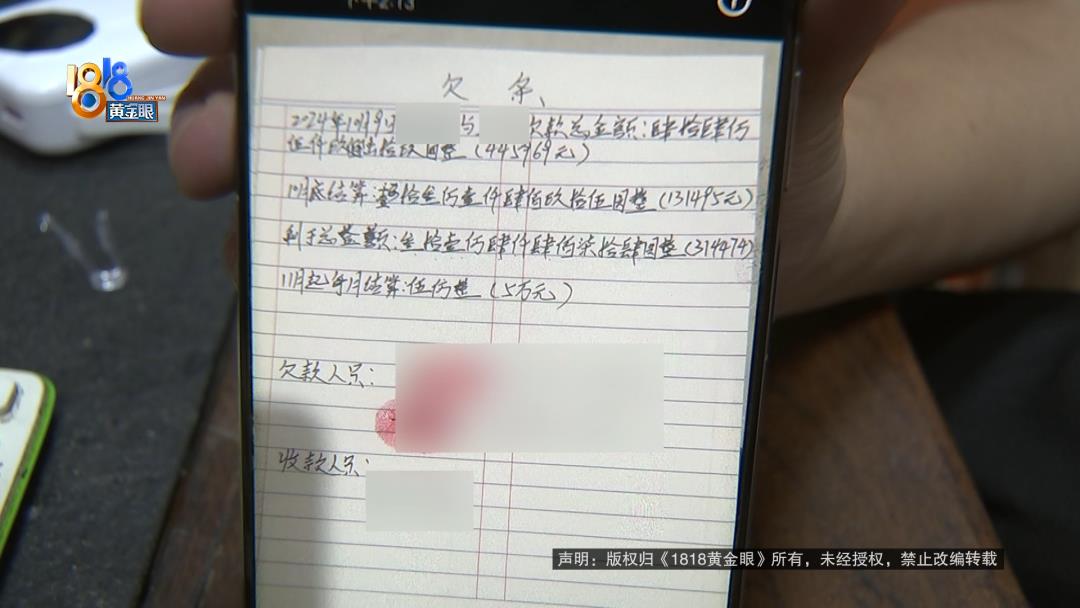 下午2:13
1818
HUANG JIN YAN
黄金眼
欠 条
2024年10月9日 与 欠款总金额:肆拾肆伍
伍仟玖佰陆拾玖圆整(445969元)
10月底结算:壹拾叁伍壹仟肆佰玖拾伍圆整(131495元)
剩于总金额:叁拾壹伍肆仟肆佰柒拾肆圆整(314474)
11月起每月结算:伍伍整(5万元)
欠款人员:
收款人员:
声明:版权归《1818黄金眼》所有,未经授权,禁止改编转载